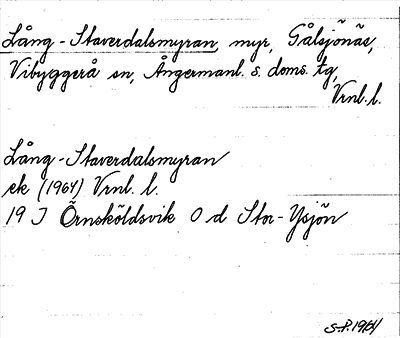 Lång-Staverdalsmyran, myr, Gålsjönäs,
Vibyggerå sn, Ångermanl. s. doms. tg,
Vrnl. l.
Lång-Staverdalsmyran
ek (1964) Vrnl. l.
19 J Örnsköldsvik 0 d Stor-Ysjön
S.P. 1964